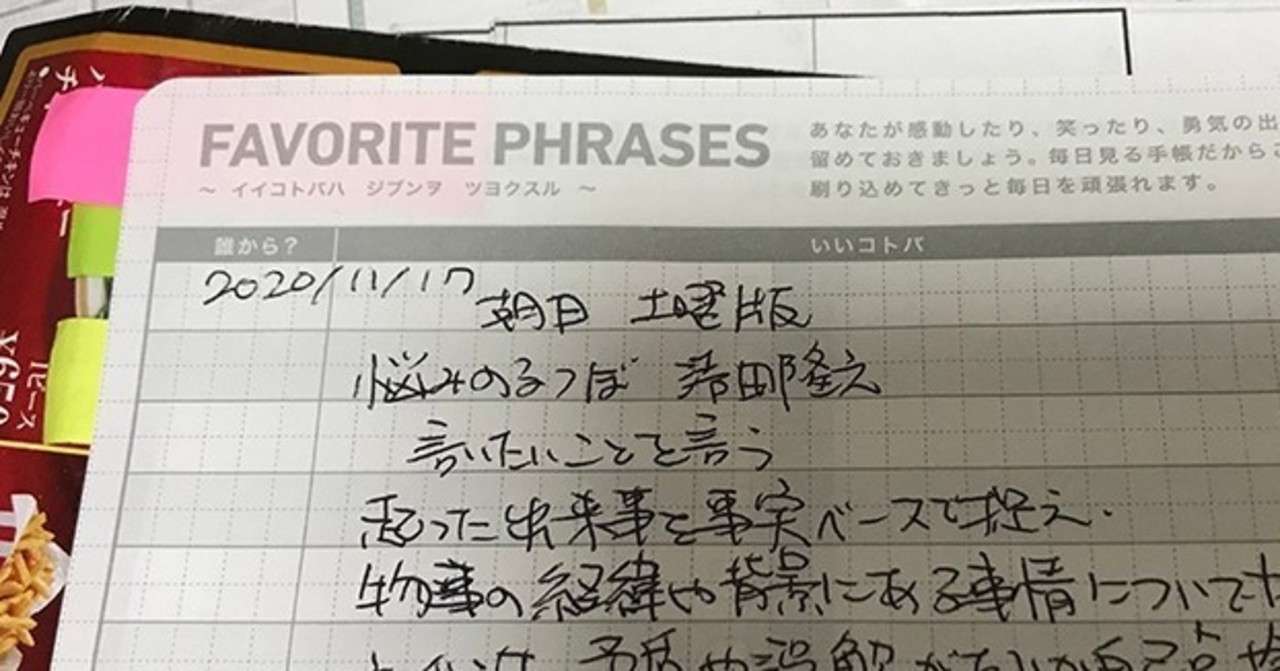 FAVORITE PHRASES
～ イイコトバハ ジブンヲ ツヨクスル ～
あなたが感動したり、笑ったり、勇気の出
留めておきましょう。毎日見る手帳だからこ
刷り込めてきっと毎日を頑張れます。
誰から？ いいコトバ
2020/11/17 朝日 土曜版
悩みのるつぼ 清田隆之
言いたいことを言う
起った出来事を事実ベースで捉え.
物事の経緯や背景にある事情について
予断や誤解がないか
ピース
¥650